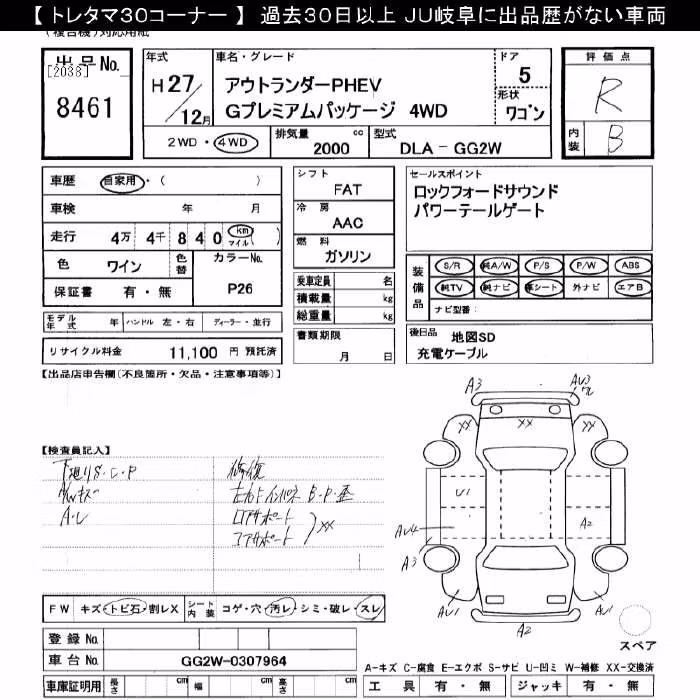 【 トレタマ30コーナー 】 過去30日以上 JU岐阜に出品歴がない車両
(複合機)対応用紙
出品No.
[2038]
8461
年式
H27/12月
車名・グレード
アウトランダーPHEV
Gプレミアムパッケージ 4WD
ドア
5
形状
ワゴン
評価点
R
内装
B
2WD・4WD
排気量
2000 cc
型式
DLA - GG2W
車歴 自家用・( )
車検 年 月
走行 4万 4千 8 4 0 km マイル( )
色 ワイン
色替
カラーNo.
P26
保証書 有・無
シフト
FAT
冷房
AAC
燃料
ガソリン
乗車定員 名
積載量 kg
総重量 kg
セールスポイント
ロックフォードサウンド
パワーテールゲート
装備品
S/R 純A/W P/S P/W ABS
純TV 純ナビ 革シート 外ナビ エアB
ナビ型番:
モデル年式 年 ハンドル 左・右 ディーラー・並行
リサイクル料金 11,100 円 預託済
書類期限
月 日
後日品 地図SD
充電ケーブル
【出品店申告欄(不良箇所・欠品・注意事項等)】
【検査員記入】
下廻りS・C・P
A/Wキズ
A・U
修復
左右Fインパネ B・P・歪
ロアサポート
コアサポート
XX
A3
AU3
XX
XX
XX
U1
A2
AU4
A3
AU1
A2
AU1
スペア
FW キズ・トビ石・割レX
シート内装 コゲ・穴・汚レ・シミ・破レ・スレ
登録 No.
車台 No. GG2W-0307964
車庫証明用 長さ cm 幅 cm 高さ cm
A-キズ C-腐食 E-エクボ S-サビ U-凹ミ W-補修 XX-交換済
工具 有・無 ジャッキ 有・無